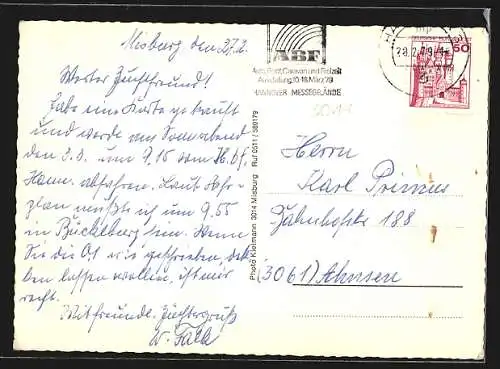 Misburg den 27.2.
Werter Zuchtfreund!
habe eine Karte gekauft
und werde am Sonnabend
den 3.3. um 9,15 vom H.bf.
Hann. abfahren. Laut Fahr-
plan müßte ich um 9.55
in Bückeburg sein. Wenn
Sie die wie geschrieben,
lassen wollen, ist mir
recht.
Mit freundl. Züchtergruß
W. Falk
ABF
Auto, Boot, Caravan und Freizeit
Ausstellung 10.-18. März 79
HANNOVER MESSEGELÄNDE
28.2.79
60
Photo Kielmann 3014 Misburg Ruf 0511 / 580179
Herrn
Karl Primus
Zahnhofstr 188
(3061) Ahnsen